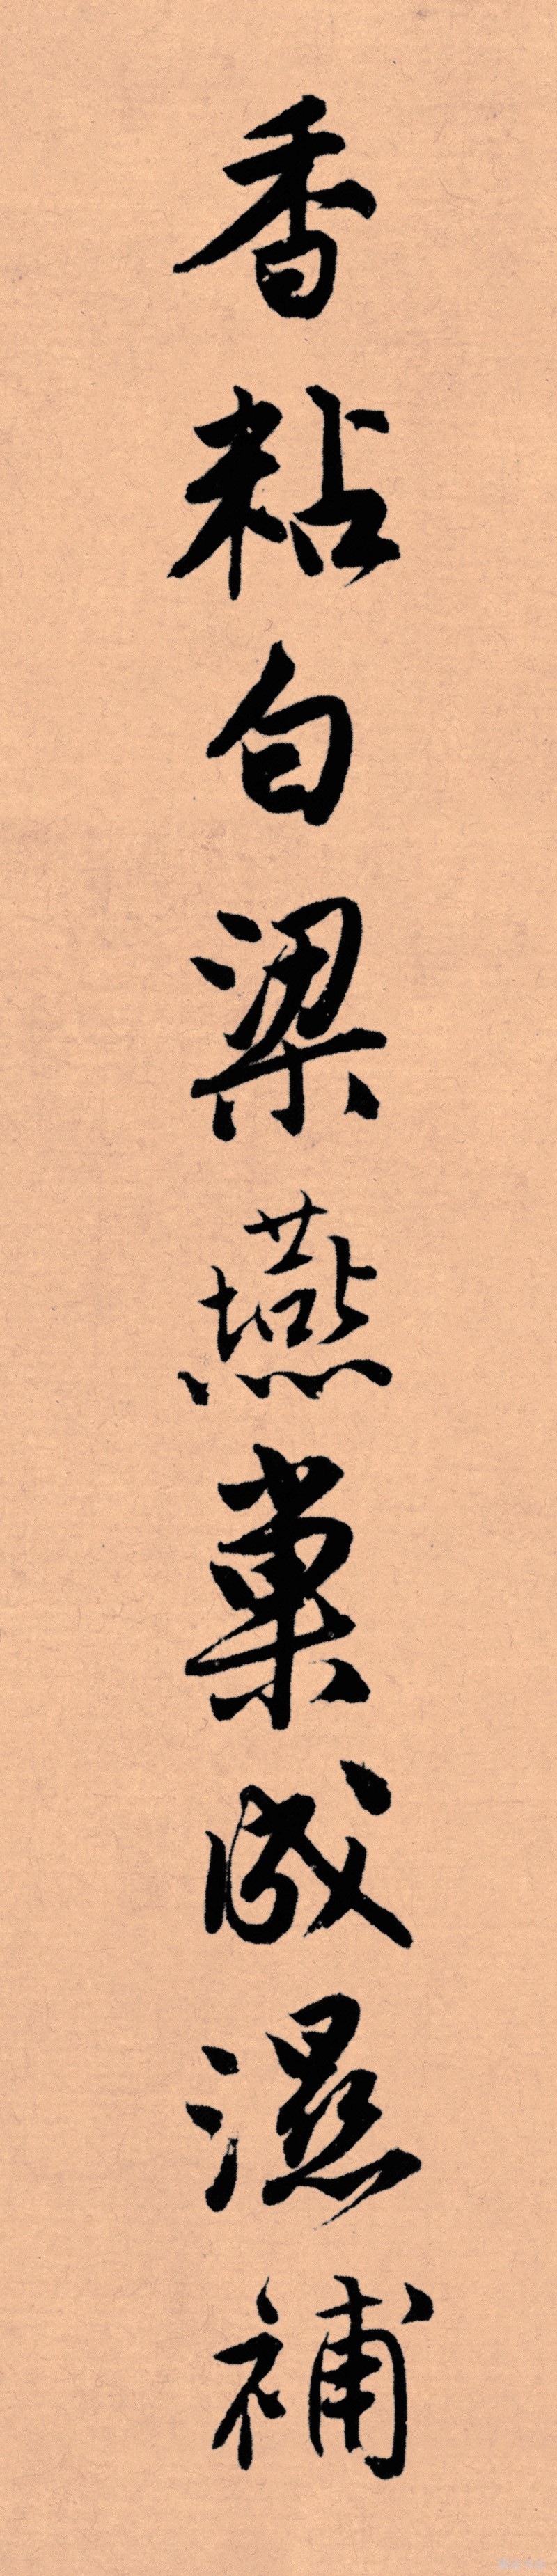 香粘白梁燕巢成濕補